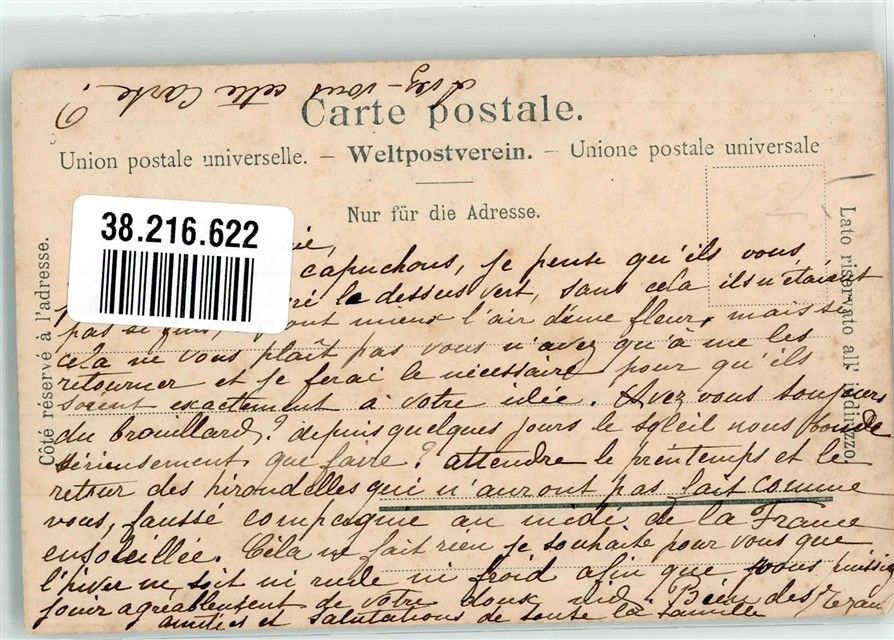 Avez-vous cette Carte ?
Carte postale.
Union postale universelle. – Weltpostverein. – Unione postale universale
Nur für die Adresse.
Côté réservé à l'adresse.
Lato riservato all' indirizzo.
38.216.622
capuchons, je pense qu'ils vous
le dessus vert, sans cela ils n'étaient
pas si fins, ont mieux l'air d'une fleur, mais si
cela ne vous plaît pas vous n'avez qu'à me les
retourner et je ferai le nécessaire pour qu'ils
soient exactement à votre idée. Avez vous toujours
du brouillard? depuis quelques jours le soleil nous boude
sérieusement que faire? attendre le printemps et le
retour des hirondelles qui n'auront pas fait comme
vous, faussé compagnie au midi de la France
ensoleillée. Cela ne fait rien je souhaite pour vous que
l'hiver ne soit ni rude ni froid afin que vous puissiez
jouir agréablement de votre doux nid. Bien des
amitiés et salutations de toute la famille